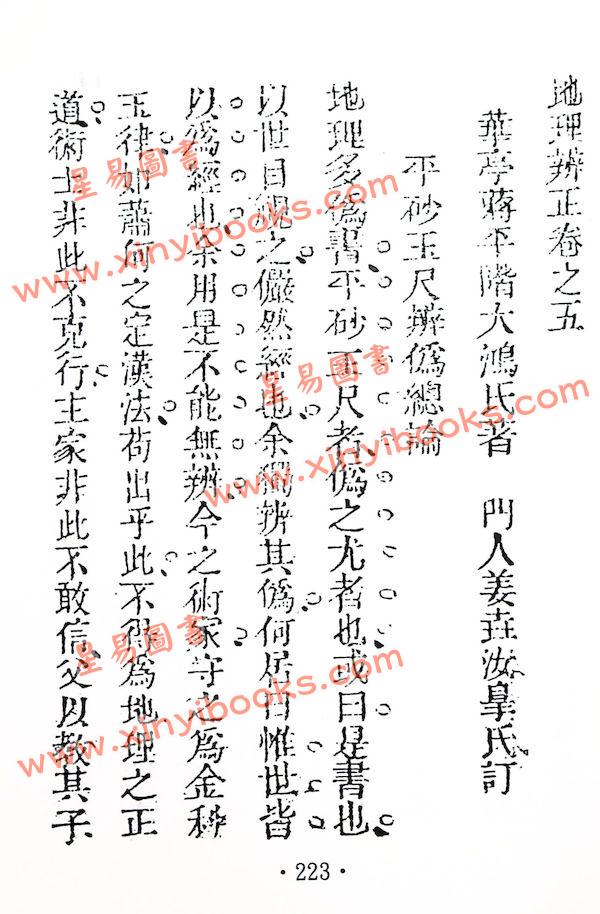 地理辨正卷之五
華亭蔣平階大鴻氏著　門人姜垚汝臯氏訂
平砂玉尺辨僞總論
地理多僞書平砂玉尺者僞之尤者也或曰是書也
以世目觀之儼然經也余獨辨其僞何居曰惟世皆
以爲經也余用是不能無辨今之術家守之爲金科
玉律如蕭何之定漢法苟出乎此不得爲地理之正
道術士非此不克行主家非此不敢信父以教其子
·223·
星易圖書
www.xinyibooks.com
星易圖書
www.xinyibooks.com
星易圖書
www.xinyibooks.com